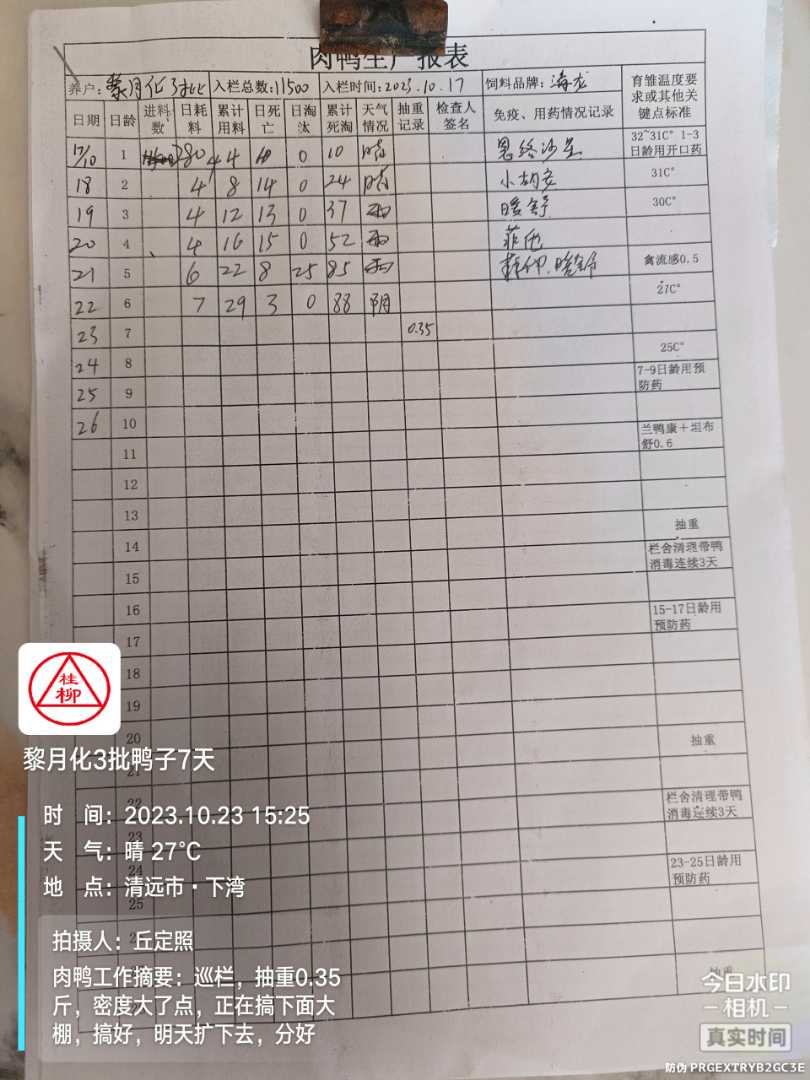 肉鸭生产报表
养户: 黎月化3批 入栏总数:11500 入栏时间:2023.10.17 饲料品牌: 海龙 育雏温度要求或其他关键点标准
日期 日龄 进料数 日耗料 累计用料 日死亡 日淘汰 累计死淘 天气情况 抽重记录 检查人签名 免疫、用药情况记录
17/10 1 4 4 10 0 10 晴 32~31C° 1-3日龄用开口药
18 2 4 8 14 0 24 晴 31C°
19 3 4 12 13 0 37 雨 暖舒 30C°
20 4 4 16 15 0 52 雨
21 5 6 22 8 25 85 雨 禽流感0.5
22 6 7 29 3 0 88 阴 27C°
23 7 0.35
24 8 25C°
25 9 7-9日龄用预防药
26 10
11 兰鸭康+坦布舒0.6
12
13
14 抽重
15 栏舍清理带鸭消毒连续3天
16
17 15-17日龄用预防药
18
19
20
21 抽重
22
23 栏舍清理带鸭消毒连续3天
24
25 23-25日龄用预防药
抽重
桂柳
黎月化3批鸭子7天
时 间: 2023.10.23 15:25
天 气: 晴 27℃
地 点: 清远市·下湾
拍摄人: 丘定照
肉鸭工作摘要: 巡栏，抽重0.35
斤，密度大了点，正在搞下面大
棚，搞好，明天扩下去，分好
今日水印
相机
真实时间
防伪 PRGEXTRYB2GC3E